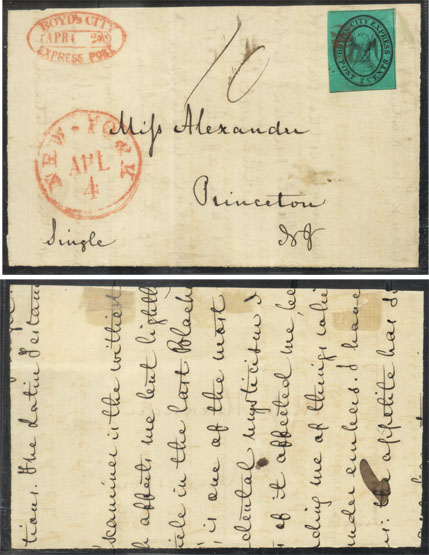 BOYD'S CITY
APR 4
EXPRESS POST
10
CITY EXPRESS
CENTS
NEW-YORK
APL
4
Miss Alexander
Princeton
Single
NJ
tions. The Latin Testam
examiner is the wittiest
h affects me but lightl
cle in the last Blackw
is one of the most
dental mysticism
of it affected me, be
ding me of things
under embers. I have
appetite has